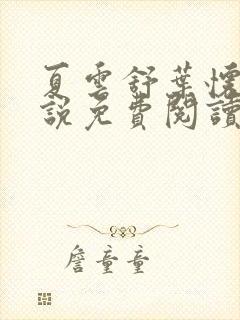 夏雲舒葉懷
說免費閱讀
詹童童